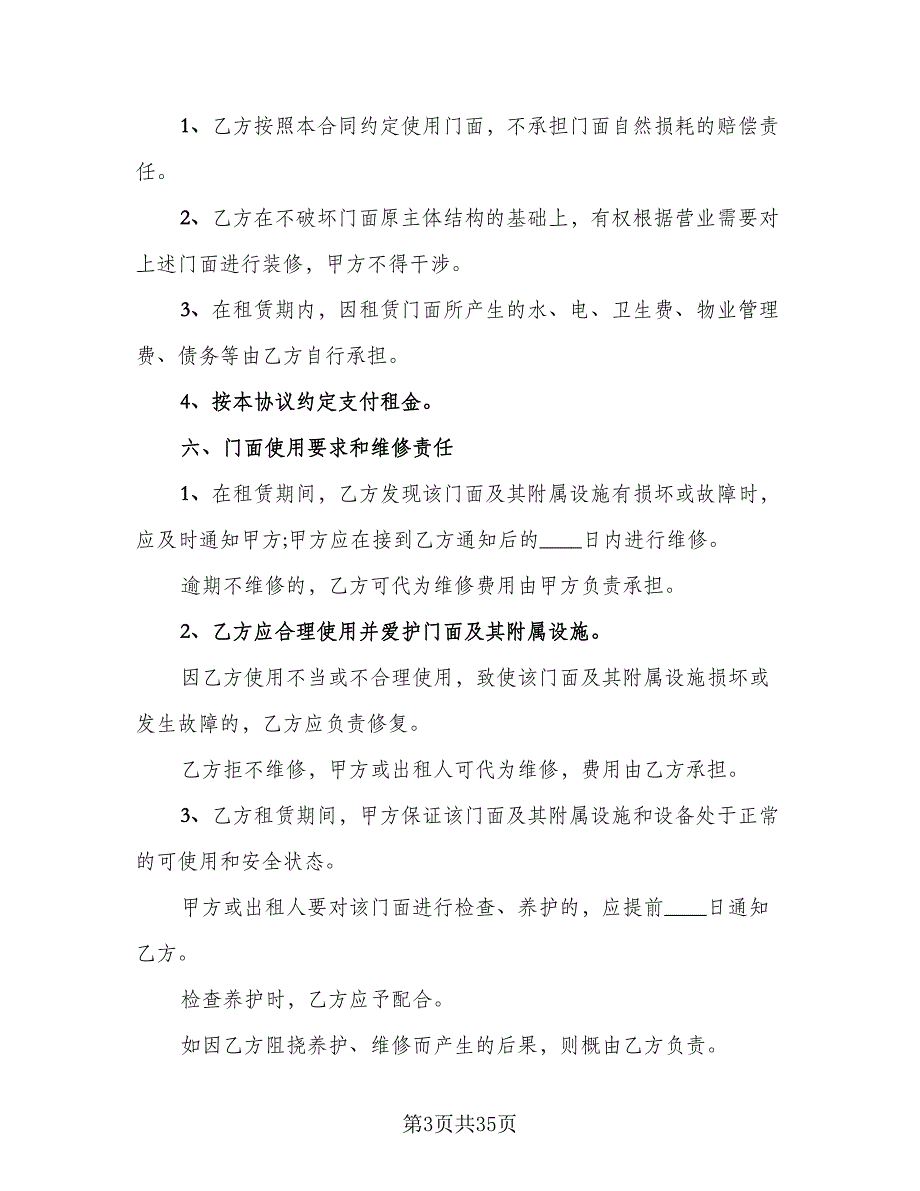 1、乙方按照本合同约定使用门面，不承担门面自然损耗的赔偿责
任。
2、乙方在不破坏门面原主体结构的基础上，有权根据营业需要对
上述门面进行装修，甲方不得干涉。
3、在租赁期内，因租赁门面所产生的水、电、卫生费、物业管理
费、债务等由乙方自行承担。
4、按本协议约定支付租金。
六、门面使用要求和维修责任
1、在租赁期间，乙方发现该门面及其附属设施有损坏或故障时，
应及时通知甲方;甲方应在接到乙方通知后的____日内进行维修。
逾期不维修的，乙方可代为维修费用由甲方负责承担。
2、乙方应合理使用并爱护门面及其附属设施。
因乙方使用不当或不合理使用，致使该门面及其附属设施损坏或
发生故障的，乙方应负责修复。
乙方拒不维修，甲方或出租人可代为维修，费用由乙方承担。
3、乙方租赁期间，甲方保证该门面及其附属设施和设备处于正常
的可使用和安全状态。
甲方或出租人要对该门面进行检查、养护的，应提前____日通知
乙方。
检查养护时，乙方应予配合。
如因乙方阻挠养护、维修而产生的后果，则概由乙方负责。
第3页共35页